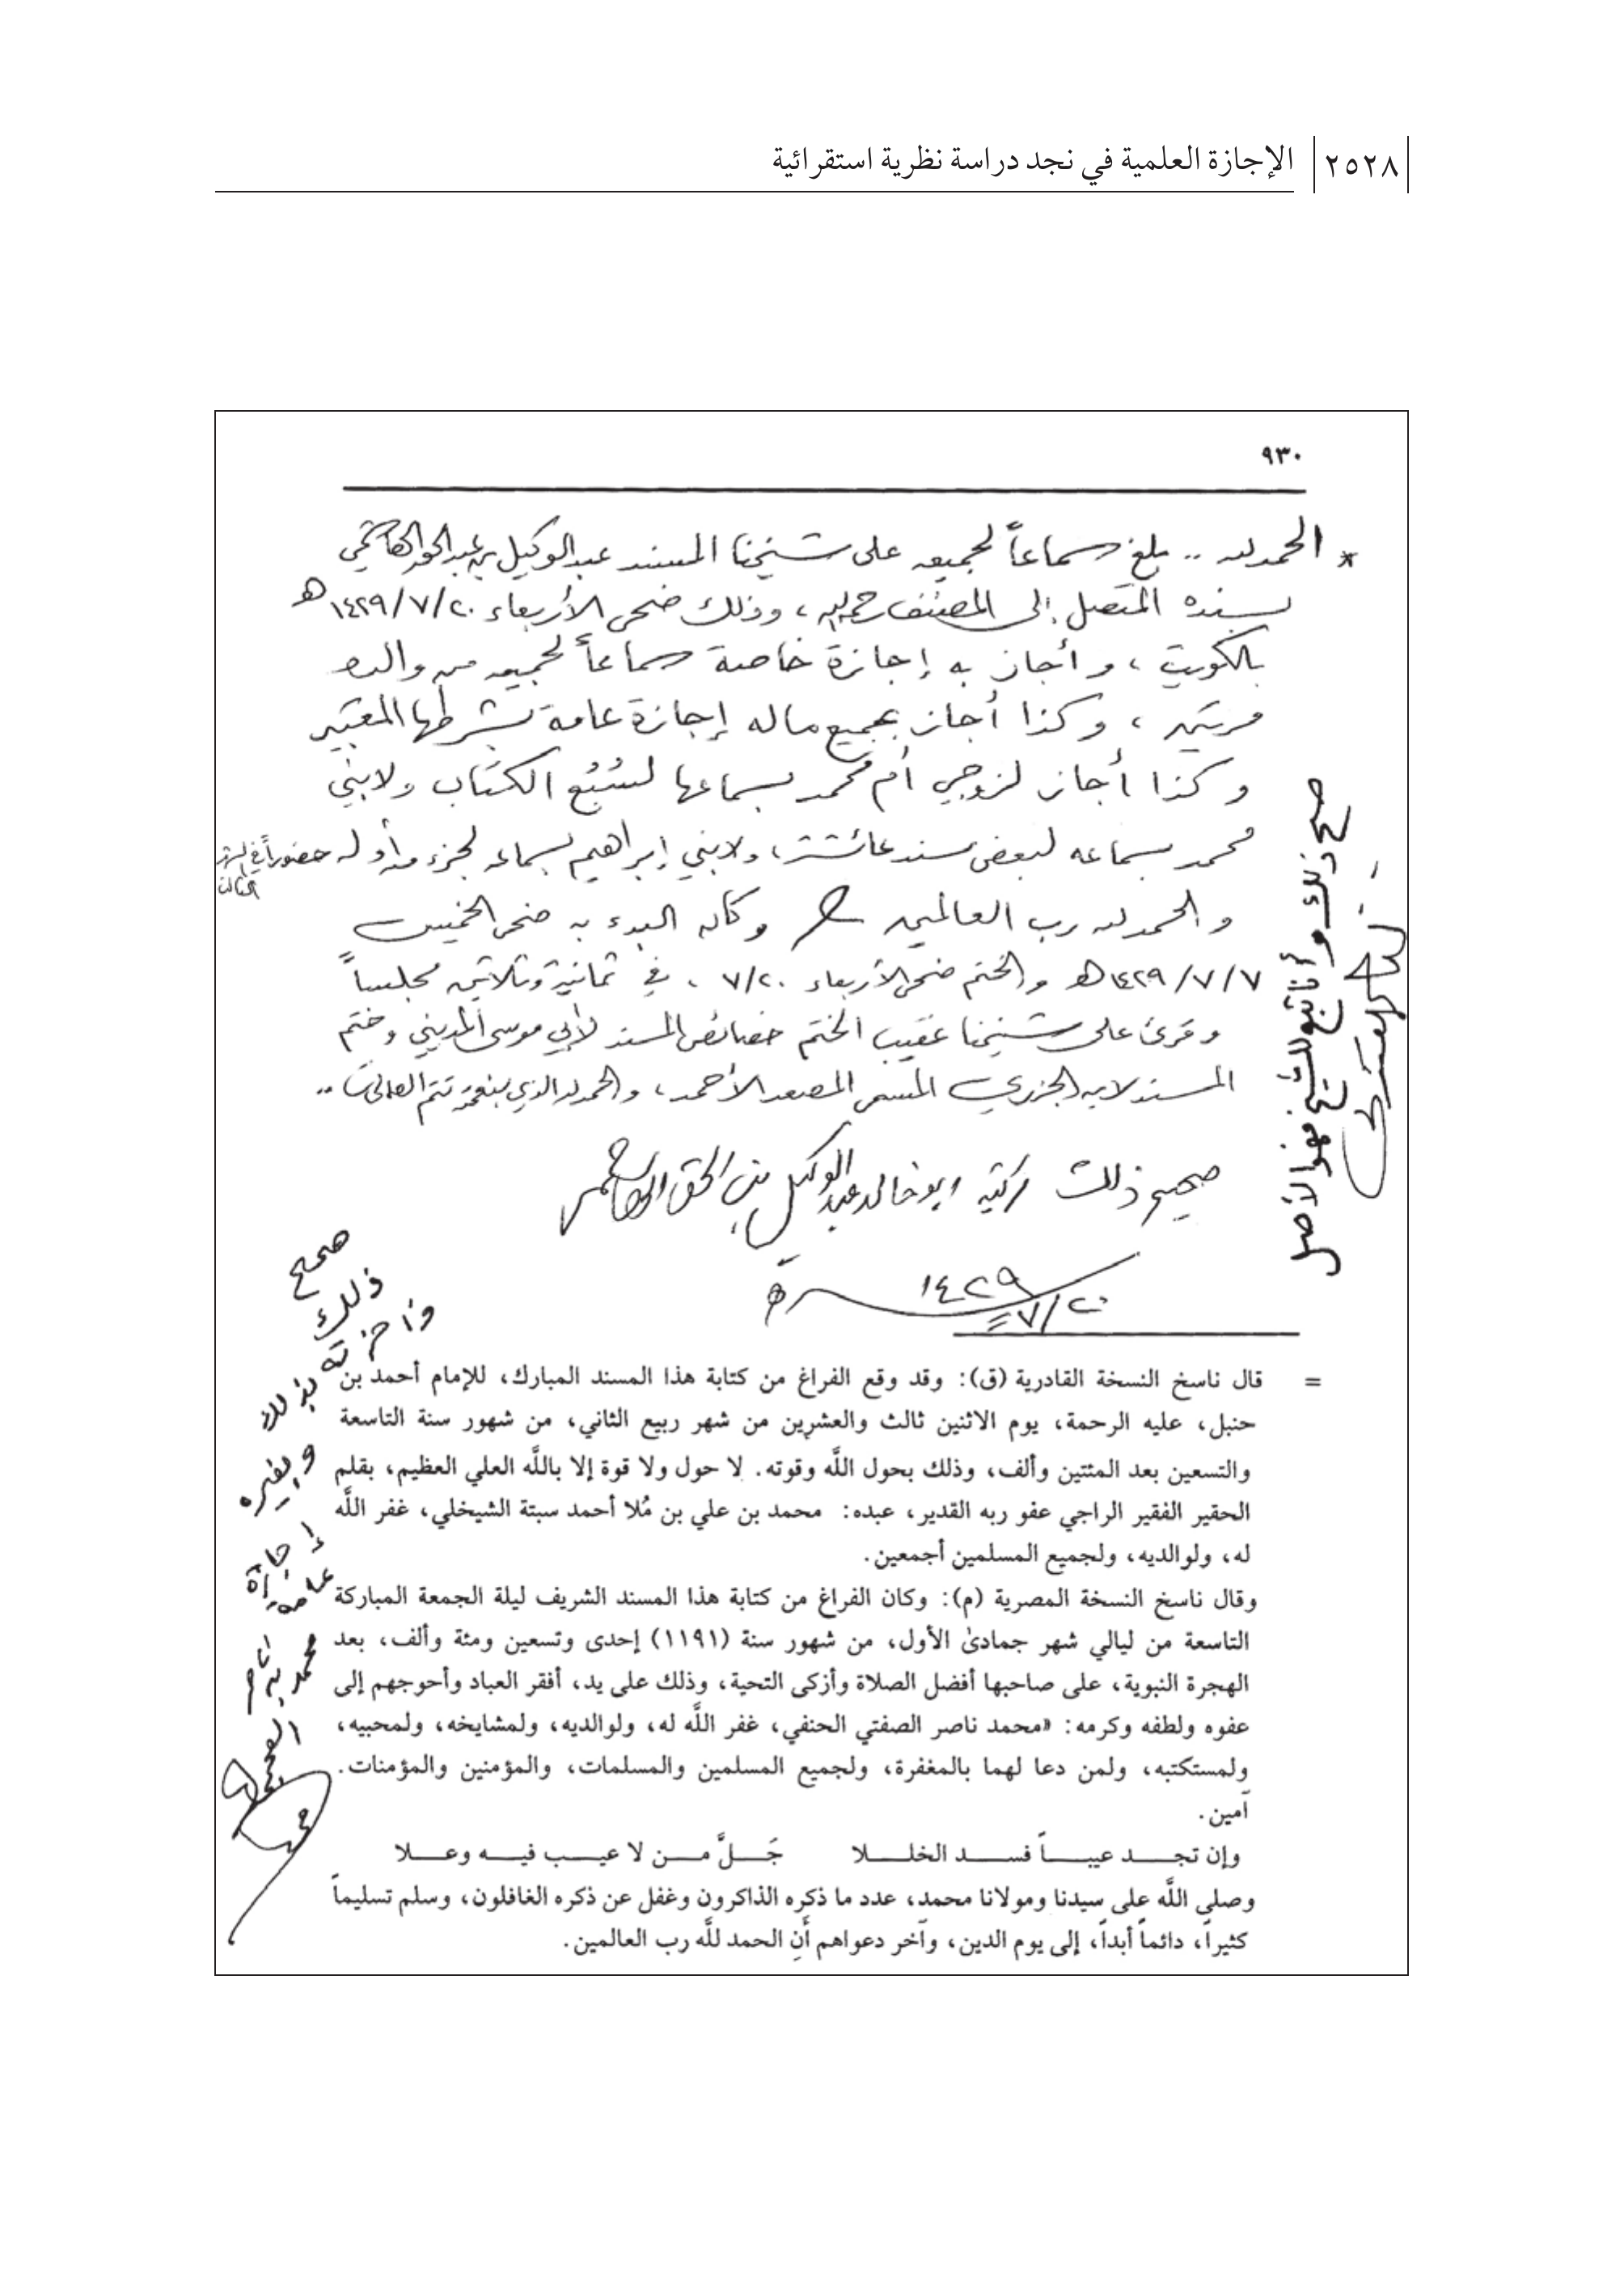 ٢٥٢٨ الإجازة العلمية في نجد دراسة نظرية استقرائية
٩٣٠
* الحمد لله .. بلغ سماعاً لجميعه على شيخنا المسند عبدالوكيل بن عبدالحق الهاشمي
بسنده المتصل إلى المصنف رحمه الله ، وذلك ضحى الأربعاء ١٤٢٩/٧/٢٠هـ
بالكويت ، وأجاز به إجازة خاصة سماعاً لجميعه من والده
مرتين ، وكذا أجاز بجميع ماله إجازة عامة بشرطها المعتبر
وكذا أجاز لزوجي أم محمد بسماعها لسُبُع الكتاب ولابني
محمد بسماعه لبعض مسند عائشة ، ولابني إبراهيم بسماعه لجزء من أوله حضوراً في
الثالثة
والحمد لله رب العالمين وكان البدء به ضحى الخميس
١٤٢٩/٧/٧هـ والختم ضحى الأربعاء ٧/٢٠ ، في ثمانية وثلاثين مجلساً
وقرئ على شيخنا عقيب الختم خصائص المسند لأبي موسى المديني وختم
المسند لابن الجزري المسمى المصعد الأحمد ، والحمد لله الذي بنعمته تتم الصالحات ..
صحيح ذلك وكتبه ابو خالد عبد الوكيل بن عبد الحق الهاشمي
١٤٢٩
٧/٢٠ هـ
صح ذلك وأنا تبع للشيخ فهو الأصل
صحيح
ذلك
وأجزته
بذلك
وبغيره
إجازة
عامة
محمد بن ناصر
العجمي
= قال ناسخ النسخة القادرية (ق): وقد وقع الفراغ من كتابة هذا المسند المبارك، للإمام أحمد بن
حنبل، عليه الرحمة، يوم الاثنين ثالث والعشرين من شهر ربيع الثاني، من شهور سنة التاسعة
والتسعين بعد المئتين وألف، وذلك بحول اللَّه وقوته. لا حول ولا قوة إلا باللَّه العلي العظيم، بقلم
الحقير الفقير الراجي عفو ربه القدير، عبده: محمد بن علي بن مُلا أحمد سبتة الشيخلي، غفر اللَّه
له، ولوالديه، ولجميع المسلمين أجمعين.
وقال ناسخ النسخة المصرية (م): وكان الفراغ من كتابة هذا المسند الشريف ليلة الجمعة المباركة
التاسعة من ليالي شهر جمادىٰ الأول، من شهور سنة (١١٩١) إحدى وتسعين ومئة وألف، بعد
الهجرة النبوية، على صاحبها أفضل الصلاة وأزكى التحية، وذلك على يد، أفقر العباد وأحوجهم إلى
عفوه ولطفه وكرمه: «محمد ناصر الصفتي الحنفي، غفر اللَّه له، ولوالديه، ولمشايخه، ولمحبيه،
ولمستكتبه، ولمن دعا لهما بالمغفرة، ولجميع المسلمين والمسلمات، والمؤمنين والمؤمنات.
آمين.
وإن تجـد عيبـاً فسـد الخلـلا جَـلَّ مـن لا عيـب فيـه وعـلا
وصلى اللَّه على سيدنا ومولانا محمد، عدد ما ذكره الذاكرون وغفل عن ذكره الغافلون، وسلم تسليماً
كثيراً، دائماً أبداً، إلى يوم الدين، وآخر دعواهم أنِ الحمد للَّه رب العالمين.